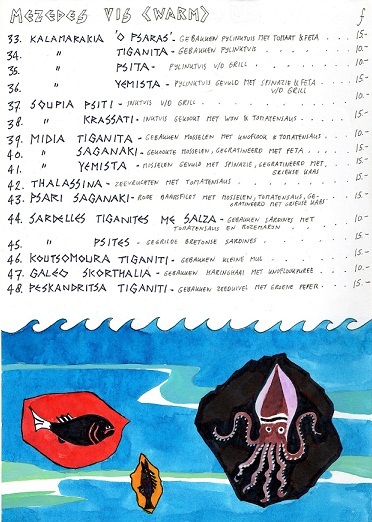 MEZEDES VIS (WARM) f
33. KALAMARAKIA 'O PSARAS' - GEBAKKEN PYLINKTVIS MET TOMAAT & FETA 15.-
34. " TIGANITA - GEBAKKEN PYLINKTVIS 10.-
35. " PSITA - PYLINKTVIS V/D GRILL 10.-
36. " YEMISTA - PYLINKTVIS GEVULD MET SPINAZIE & FETA V/D GRILL 15.-
37. SOUPIA PSITI - INKTVIS V/D GRILL 10.-
38. " KRASSATI - INKTVIS GEKOOKT MET WYN & TOMATENSAUS 10.-
39. MIDIA TIGANITA - GEBAKKEN MOSSELEN MET KNOFLOOK & TOMATENSAUS 10.-
40. " SAGANAKI - GEKOOKTE MOSSELEN, GEGRATINEERD MET FETA 10.-
41. " YEMISTA - MOSSELEN GEVULD MET SPINAZIE, GEGRATINEERD MET GRIEKSE KAAS 15.-
42. THALASSINA - ZEEVRUCHTEN MET TOMATENSAUS 15.-
43. PSARI SAGANAKI - RODE BAARSFILET MET MOSSELEN, TOMATENSAUS, GE-
GRATINEERD MET GRIEKSE KAAS 15.-
44. SARDELLES TIGANITES ME SALZA - GEBAKKEN SARDINES MET
TOMATENSAUS EN ROZEMARYN 10.-
45. " PSITES - GEGRILDE BRETONSE SARDINES 15.-
46. KOUTSOMOURA TIGANITI - GEBAKKEN KLEINE MUL 10.-
47. GALEO SKORTHALIA - GEBAKKEN HARINGHAAI MET KNOFLOOKPUREE 10.-
48. PESKANDRITSA TIGANITI - GEBAKKEN ZEEDUIVEL MET GROENE PEPER 15.-